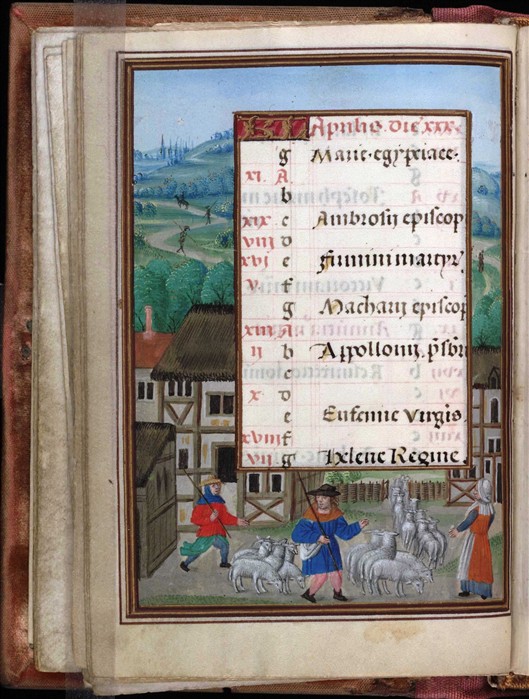 KL Aprilis. die xxx.
g Marie egypciace.
xi. A
b
xix c Ambrosii episcop
viii d
xvi e firmini martyr
v. f
g Macharii episcop
xiii A
ii b Appollonii. psbri
c
x d
e Eufemie virgis.
xviii f
vii. g Helene Regine.